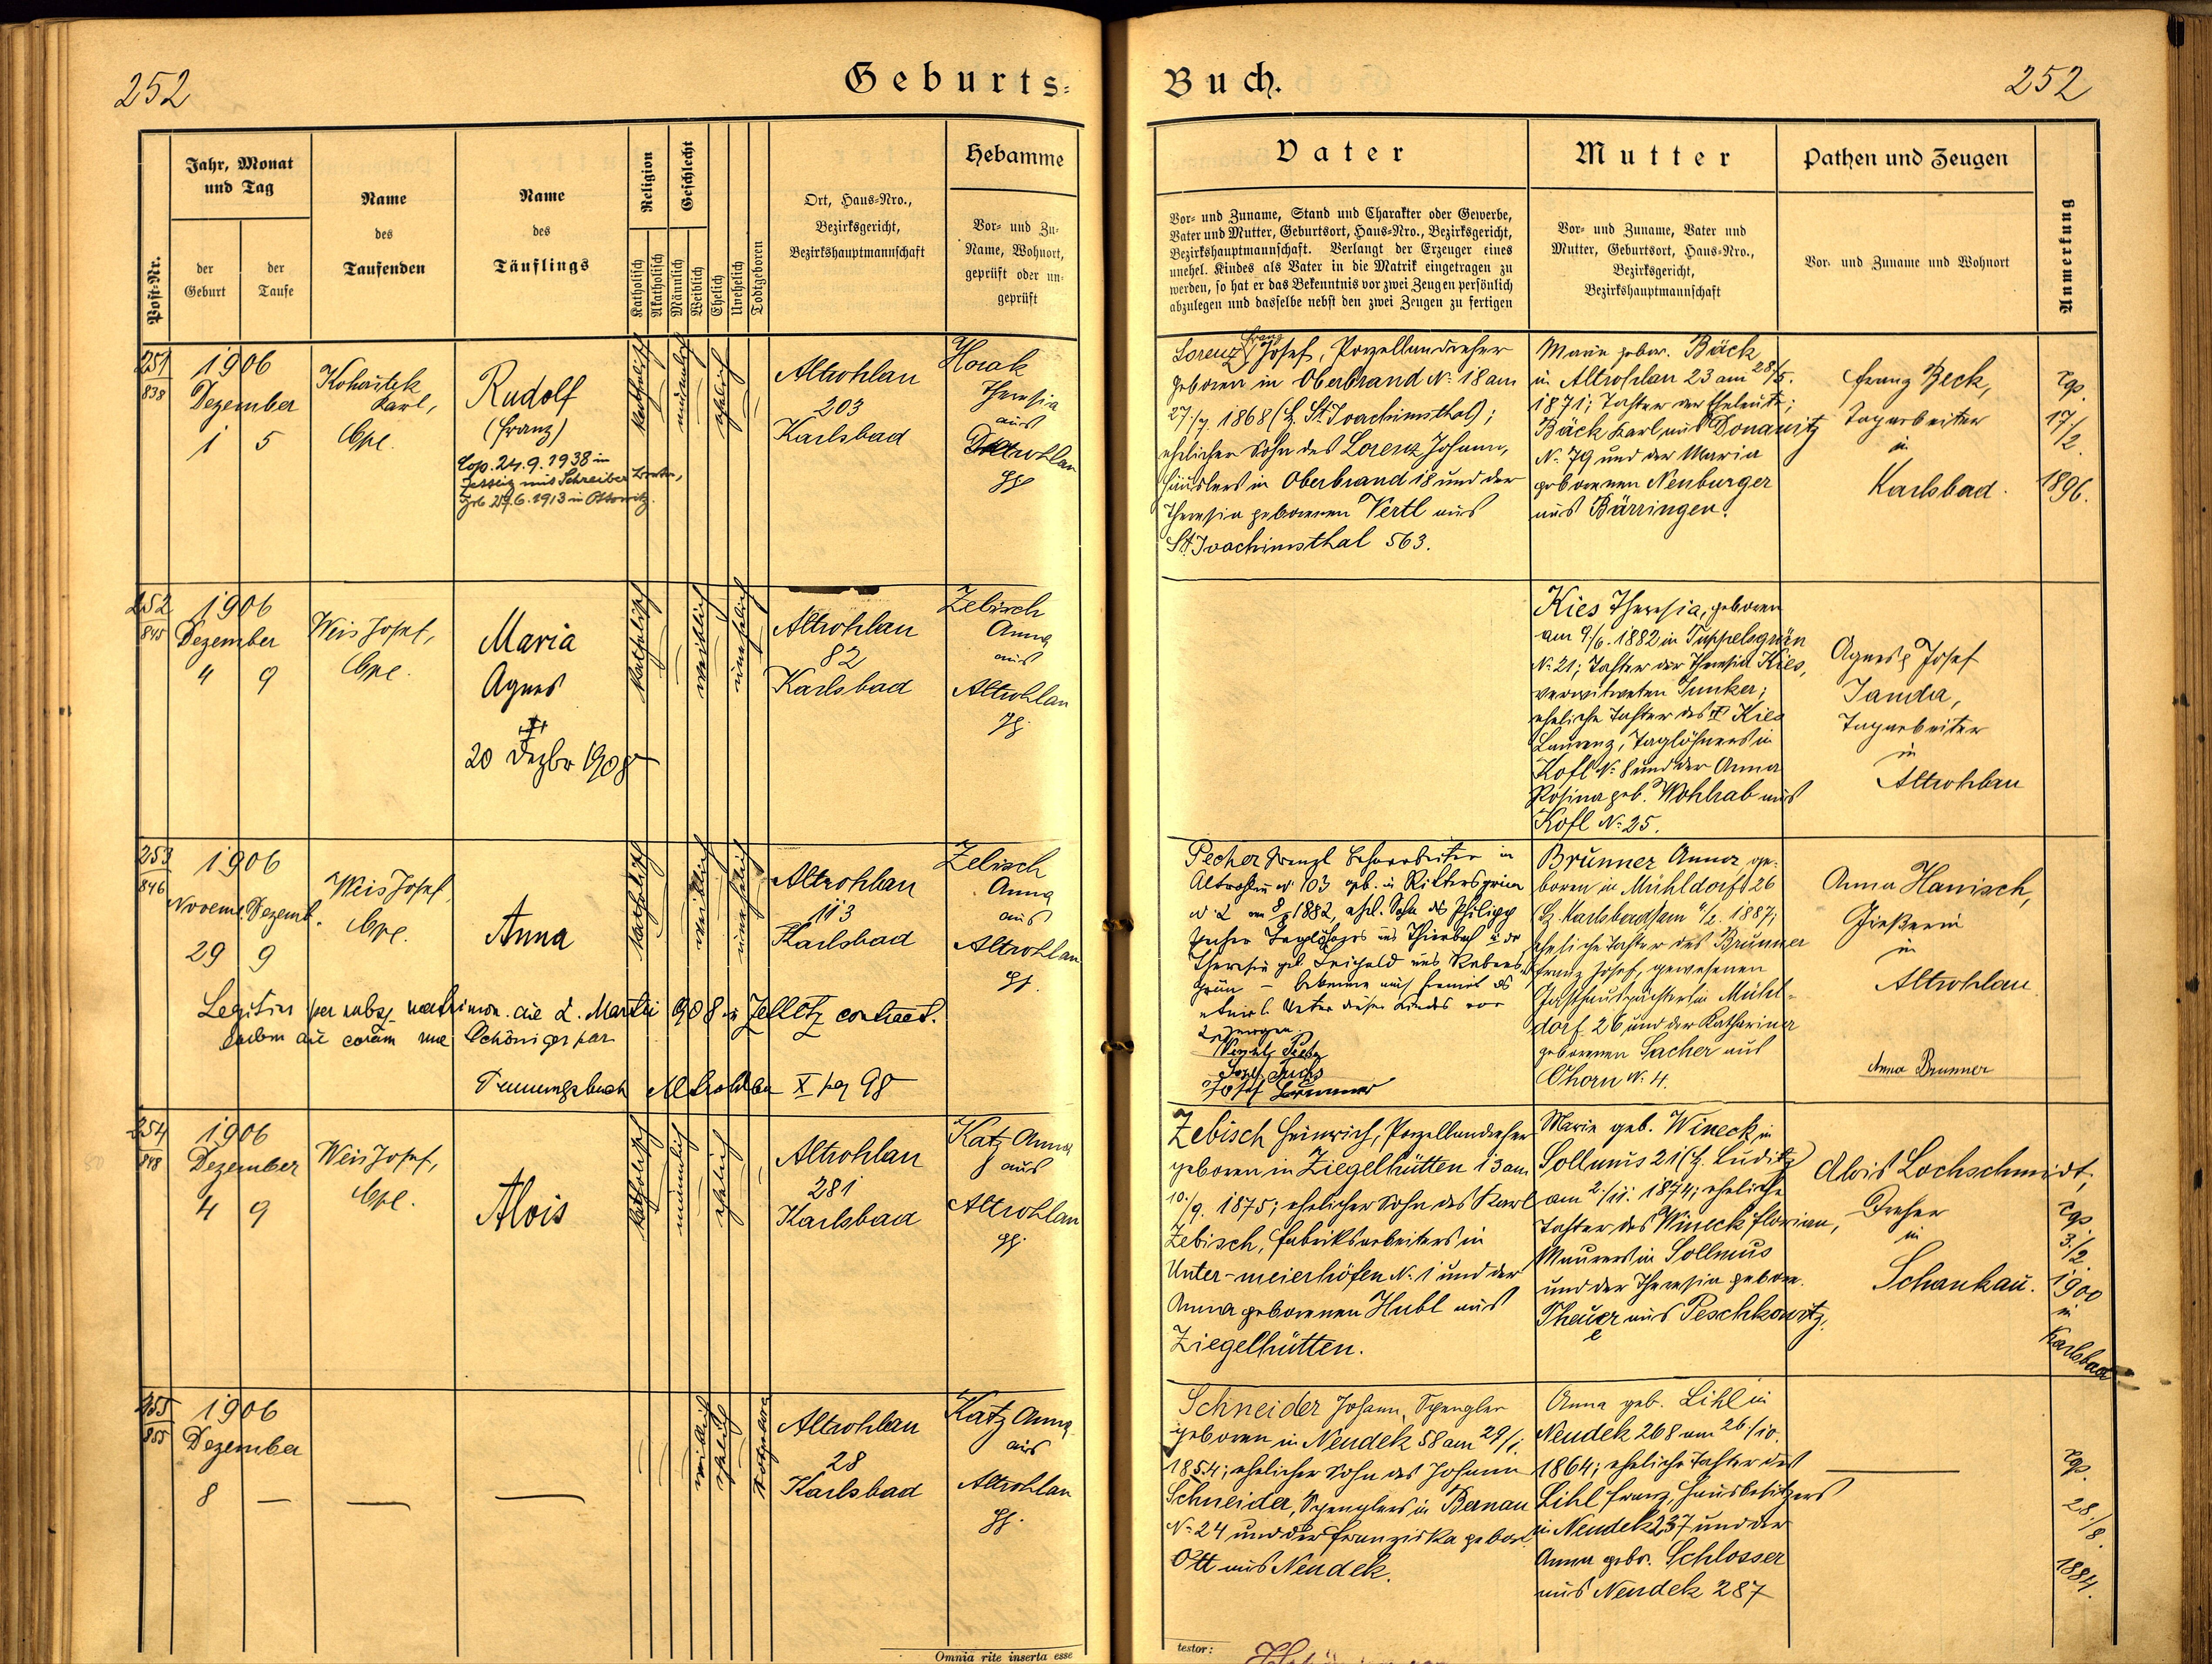 252
Geburts-
Buch.
252
Post-Nr.
Jahr, Monat
und Tag
der
Geburt
der
Taufe
Name
des
Taufenden
Name
des
Täuflings
Religion
Katholisch
Akatholisch
Geschlecht
Männlich
Weiblich
Ehelich
Unehelich
Todtgeboren
Ort, Haus-Nro.,
Bezirksgericht,
Bezirkshauptmannschaft
Hebamme
Vor- und Zu-
Name, Wohnort,
geprüft oder un-
geprüft
Vater
Vor- und Zuname, Stand und Charakter oder Gewerbe,
Vater und Mutter, Geburtsort, Haus-Nro., Bezirksgericht,
Bezirkshauptmannschaft. Verlangt der Erzeuger eines
unehel. Kindes als Vater in die Matrik eingetragen zu
werden, so hat er das Bekenntnis vor zwei Zeugen persönlich
abzulegen und dasselbe nebst den zwei Zeugen zu fertigen
Mutter
Vor- und Zuname, Vater und
Mutter, Geburtsort, Haus-Nro.,
Bezirksgericht,
Bezirkshauptmannschaft
Pathen und Zeugen
Vor- und Zuname und Wohnort
Anmerkung
251
838
1906
Dezember
1 5
Karl,
Cpl.
Rudolf
(Franz)
Cop. 24.9.1938 in
mit Schreiber
geb 29.6.1913 in
katholisch
männlich
ehelich
Altrohlau
203
Karlsbad
Horak
Theresia
aus
Altrohlau
gp
Lorenz Franz Josef, Porzellandreher
geboren in Oberbrand N. 18 am
27./7. 1868 (Bz. St. Joachimsthal);
ehelicher Sohn des Lorenz Johann,
Häuslers in Oberbrand 18 und der
Theresia geborenen Vertl aus
St. Joachimsthal 563.
Marie gebor. Bäck
in Altrohlau 23 am 28/5.
1871; Tochter der Eheleute;
Bäck Karl aus Donawitz
N. 79 und der Maria
geborenen Neuburger
aus Bärringen.
Franz Beck,
Tagarbeiter
in
Karlsbad.
Cps.
17/2.
1896.
252
845
1906
Dezember
4 9
Weis Josef,
Cpl.
Maria
Agnes
†
20 Dezbr 1908
katholisch
weiblich
unehelich
Altrohlau
82
Karlsbad
Zebisch
Anna
aus
Altrohlau
gp.
Kies Theresia, geboren
am 9/6. 1882 in Tüppelsgrün
N. 21; Tochter der Theresia Kies,
verwitweten Junker;
eheliche Tochter des † Kies
Laurenz, Taglöhners in
Kofl N. 8 und der Anna
Rosina geb. Wohlrab aus
Kofl N. 25.
Agnes & Josef
Janda,
Tagarbeiter
in
Altrohlau
253
846
1906
Novemb. Dezemb.
29 9
Weis Josef,
Cpl.
Anna
katholisch
weiblich
unehelich
Altrohlau
113
Karlsbad
Zebisch
Anna
aus
Altrohlau
gp.
Legitim per subsq. matrimon. die 2. Martii 908 in Zettlitz contract.
eadem die coram me Schöniger par
Trauungsbuch Altrohlau X pag 98
Pecher Wenzl in
Altrohlau N 103 geb. in Rittersgrün
N. 2 am 1882, ehel. Sohn des Philipp
Pecher Taglöhners aus Thierbach u. der
Theresia geb. aus
bekenne mich hiemit als
Vater dieses Kindes vor
2 Zeugen.
Josef Fuchs
Josef Brunner
Brunner Anna ge-
boren in Mühldorf 26
(Bz. Karlsbad) am 4/2. 1887;
eheliche Tochter des Brunner
Franz Josef, gewesenen
Gasthauspächters in Mühl-
dorf 26 und der Katharina
geborenen Sacher aus
Chorn N. 4.
Anna Hanisch,
Gießerin
in
Altrohlau
Anna Brunner
254
848
1906
Dezember
4 9
Weis Josef,
Cpl.
Alois
katholisch
männlich
ehelich
Altrohlau
281
Karlsbad
Katz Anna
aus
Altrohlau
gp.
Zebisch Heinrich, Porzellandreher
geboren in Ziegelhütten 13 am
10./9. 1875; ehelicher Sohn des Karl
Zebisch, Fabriksarbeiters in
Unter-meierhöfen N. 1 und der
Anna geborenen Hubl aus
Ziegelhütten.
Marie geb. Wineck in
Sollmus 21 (Bz. Luditz)
am 2./11. 1874; eheliche
Tochter des Wineck Florian,
Maurers in Sollmus
und der Theresia gebore.
Theuer aus Peschkowitz.
Alois Lochschmidt,
Dreher
in
Schankau.
Cps.
3./2.
1900
in
Karlsbad
255
855
1906
Dezember
8 —
weiblich
ehelich
totgebore
Altrohlau
28
Karlsbad
Katz Anna
aus
Altrohlau
gp.
Schneider Johann, Spengler
geboren in Neudek 58 am 29/1.
1854; ehelicher Sohn des Johann
Schneider, Spenglers in Bernau
N. 24 und der Franziska gebor.
Ott aus Neudek.
Anna geb. Lihl in
Neudek 268 am 26./10.
1864; eheliche Tochter des
Lihl Franz, Hausbesitzers
in Neudek 237 und der
Anna gebr. Schlosser
aus Neudek 287
Cps.
28./8.
1884.
Omnia rite inserta esse
testor: